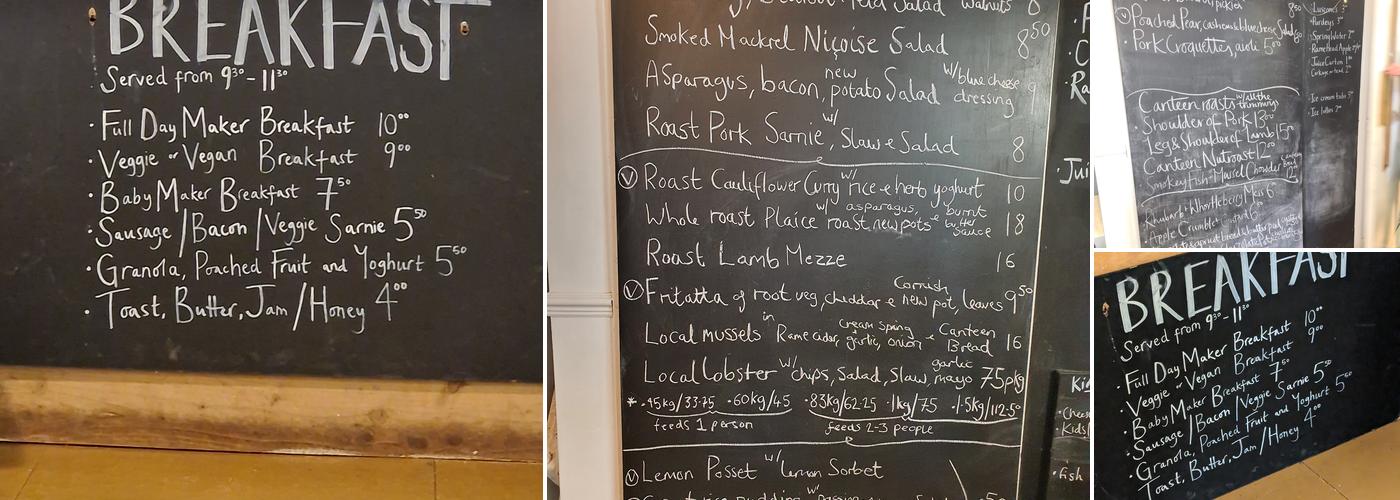 BREAKFAST
Served from 9³⁰-11³⁰
· Full Day Maker Breakfast 10⁰⁰
· Veggie or Vegan Breakfast 9⁰⁰
· Baby Maker Breakfast 7⁵⁰
· Sausage/Bacon/Veggie Sarnie 5⁵⁰
· Granola, Poached Fruit and Yoghurt 5⁵⁰
· Toast, Butter, Jam/Honey 4⁰⁰
Salad walnuts 8
Smoked Mackrel Niçoise Salad 8⁵⁰
Asparagus, bacon, new potato Salad w/ blue cheese dressing 9
Roast Pork Sarnie w/, Slaw & Salad 8
Ⓥ Roast Cauliflower Curry w/ rice & herb yoghurt 10
Whole roast Plaice w/ asparagus, roast new pots & burnt butter sauce 18
Roast Lamb Mezze 16
Ⓥ Fritatta of root veg, cheddar & Cornish new pot, leaves 9⁵⁰
Local mussels in Rame cider, cream spring garlic, onion & Canteen Bread 16
Local Lobster w/ chips, Salad, Slaw, garlic mayo 75pkg
* ·45kg/33·75 ·60kg/45 ·83kg/62·25 ·1kg/75 ·1·5kg/112·5⁰
feeds 1 person feeds 2-3 people
Ⓥ Lemon Posset w/ lemon Sorbet
Jui
Kid
·Cheese
·Kids
·fish
Ⓥ Poached Pear, cashews & blue cheese Salad 8⁵⁰
· Pork Croquettes, aioli 5⁰⁰
Canteen roasts w/ all the trimmings
Shoulder of Pork 13⁰⁰
Leg & Shoulder of Lamb 15⁰⁰
Canteen Nutroast 12⁰⁰
Smokey Fish & Mussel Chowder 12
Rhubarb & Whortleberry Mess 6
· Apple Crumble 6
· Luscombe 3
· Purdeys 3
· Spring Water 2
· Rame Head Apple
· Juice Carton 1
· Ice cream tubs 3
· Ice lollies 2
BREAKFAST
Served from 9³⁰-11³⁰
· Full Day Maker Breakfast 10⁰⁰
· Veggie or Vegan Breakfast 9⁰⁰
· Baby Maker Breakfast 7⁵⁰
· Sausage/Bacon/Veggie Sarnie 5⁵⁰
· Granola, Poached Fruit and Yoghurt 5⁵⁰
· Toast, Butter, Jam/Honey 4⁰⁰